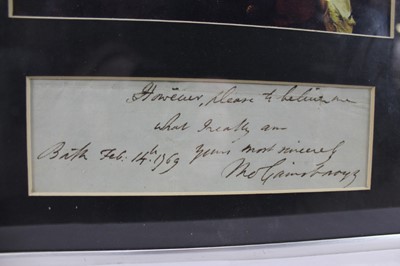 However, please to believe me
what I really am
Bath Feb. 14th. 1769 Yours most sincerely
Tho Gainsborough